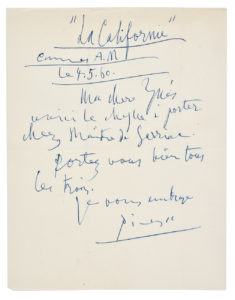 "La Californie"
Cannes A.M.
le 4.5.60.
Ma chere Inès
voici le à porter
chez Maître de
portez vous bien tous
les trois.
je vous embrasse
Picasso